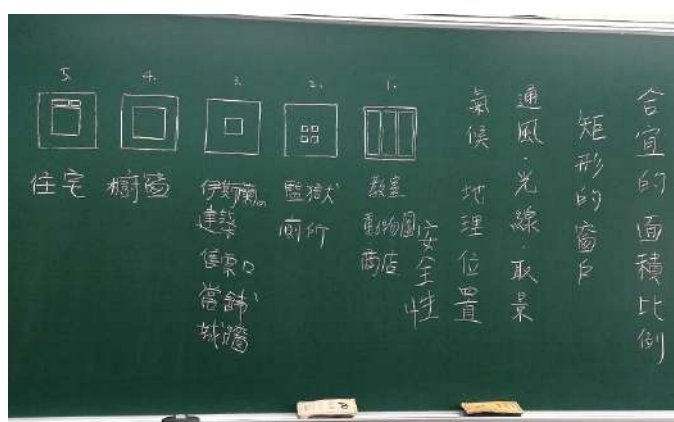 合宜的面積比例
矩形的窗戶
通風、光線、取景
氣候 地理位置
安全性
1.
教室
動物園
商店
2.
監獄
廁所
3.
伊斯蘭の
建築
售票口
當舖
城牆
4.
櫥窗
5.
住宅